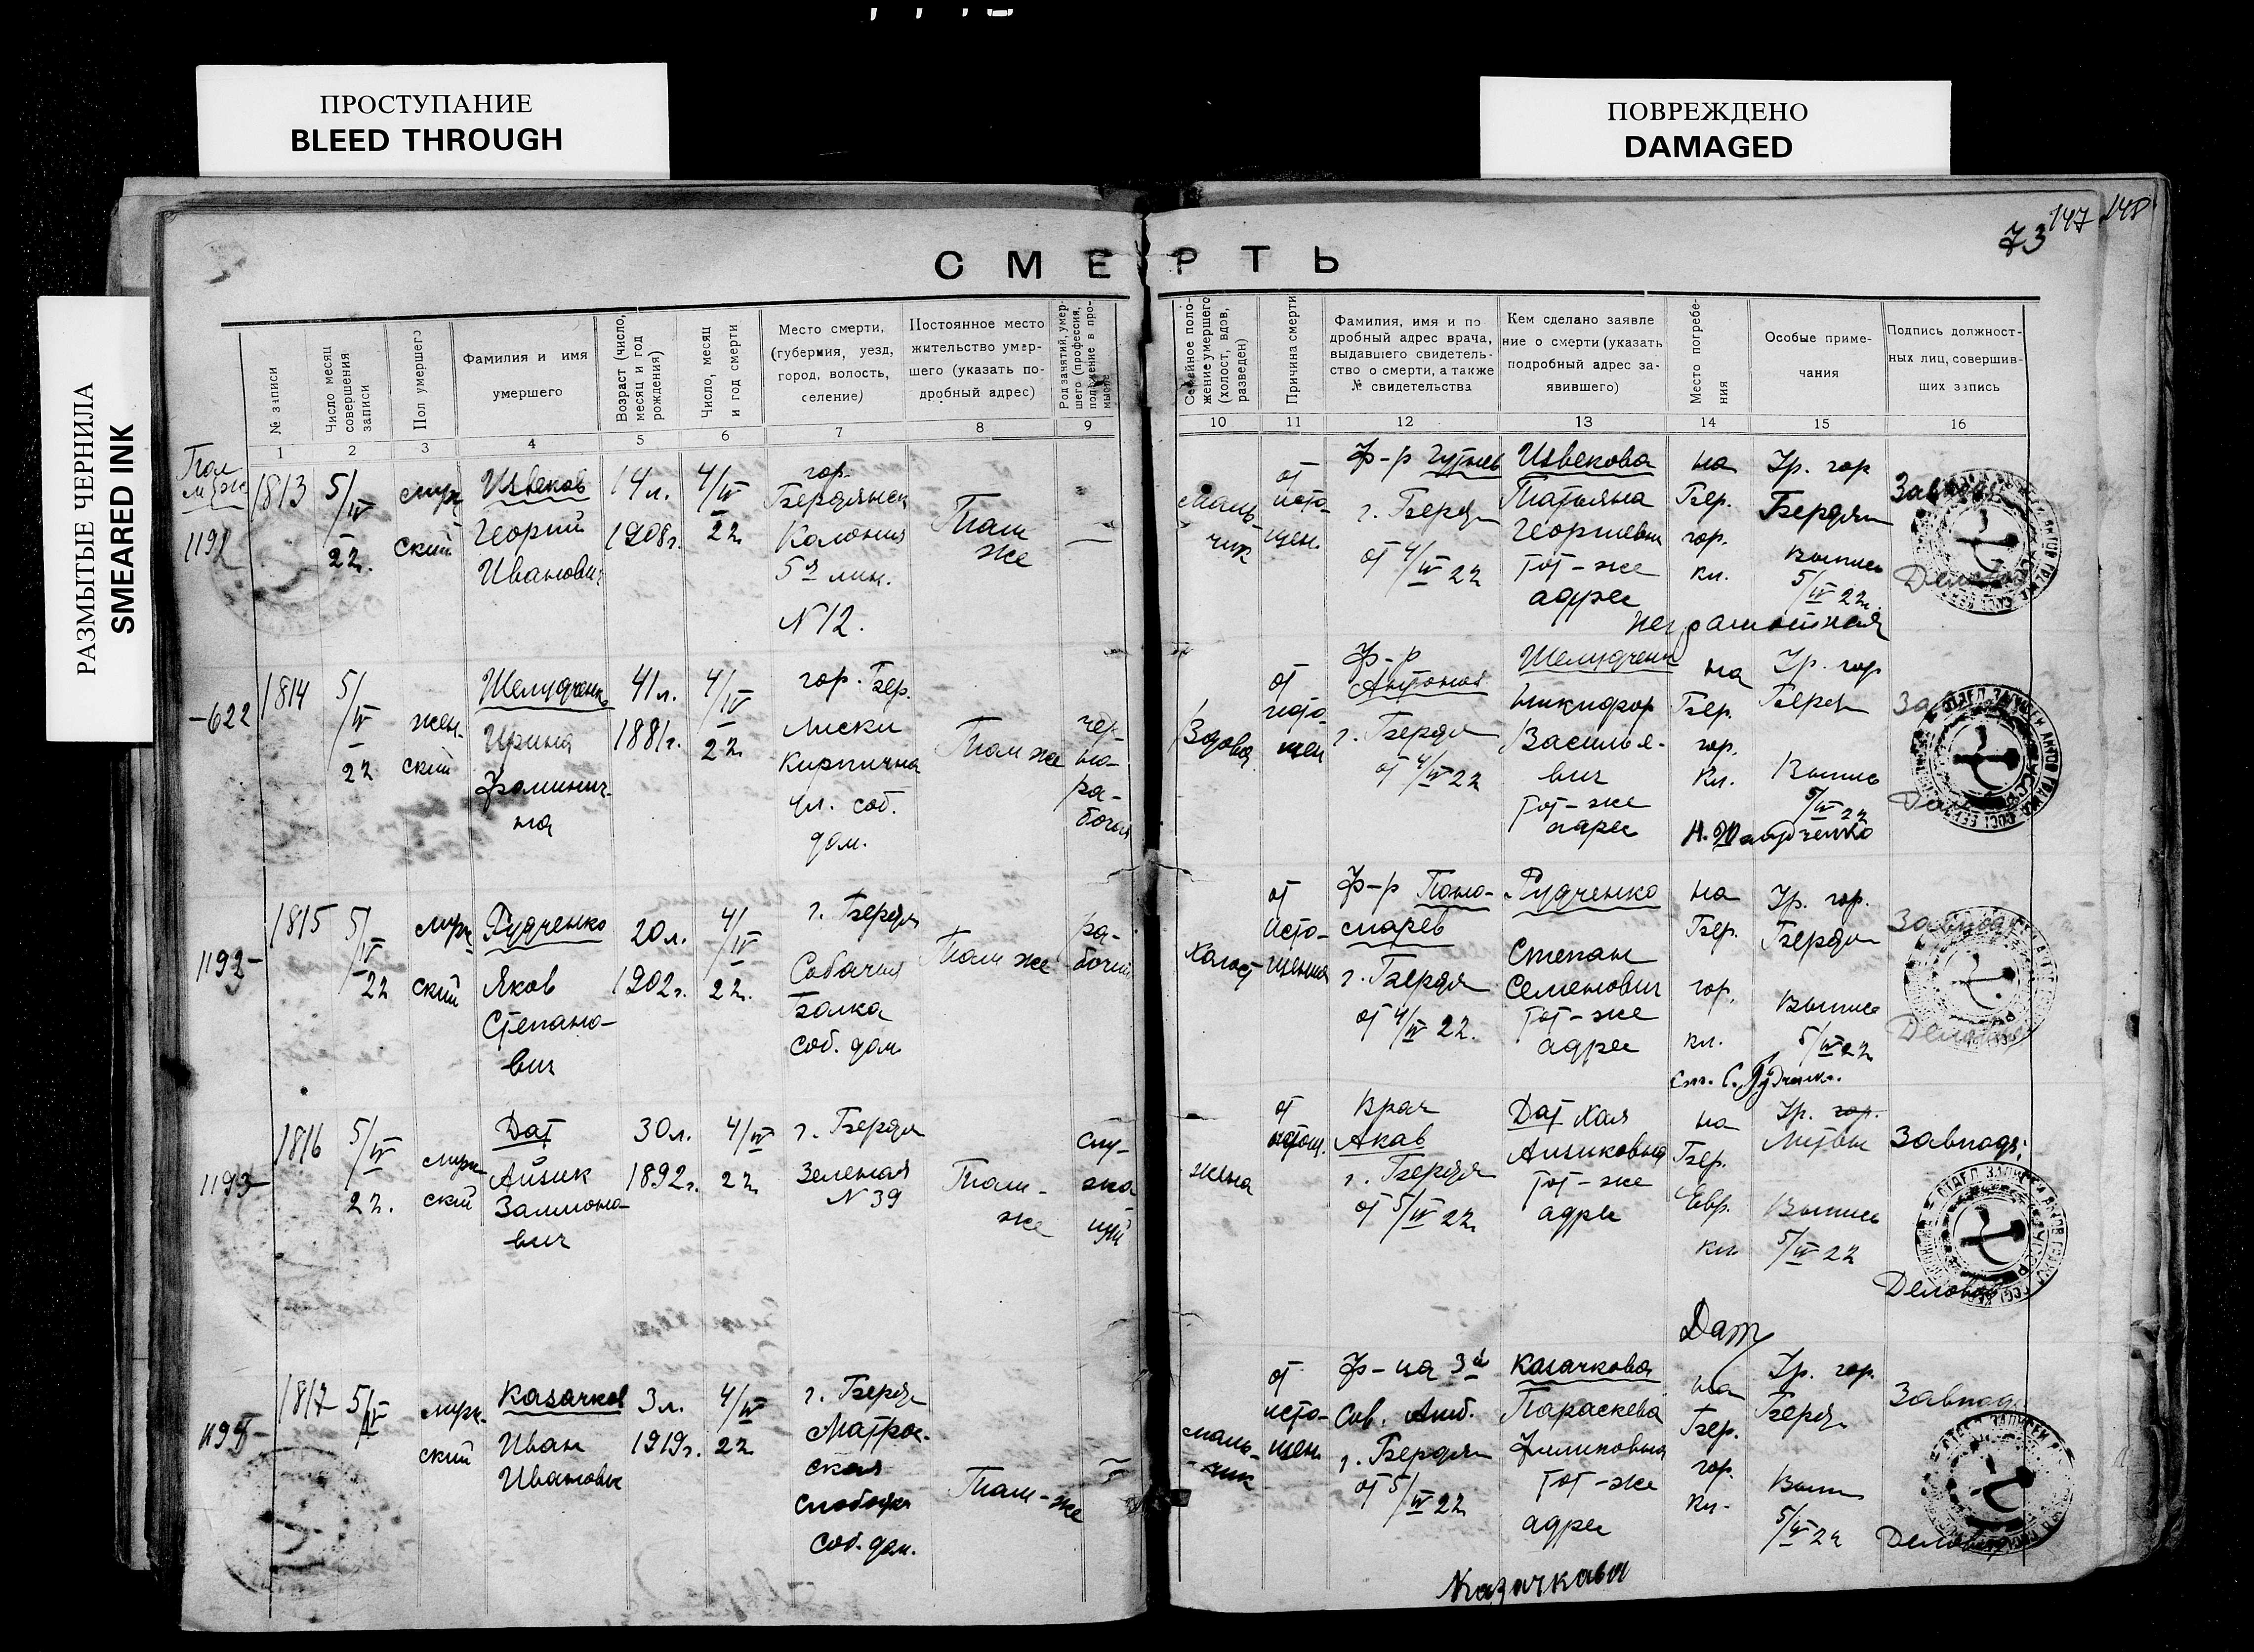 ПРОСТУПАНИЕ
BLEED THROUGH
ПОВРЕЖДЕНО
DAMAGED
РАЗМЫТЫЕ ЧЕРНИЛА
SMEARED INK
73 147 148
СМЕРТЬ
№ записи
Число месяц совершения записи
Пол умершего
Фамилия и имя
умершего
Возраст (число, месяц и год рождения)
Число, месяц и год смерти
Место смерти,
(губерния, уезд,
город, волость,
селение)
Постоянное место
жительство умер-
шего (указать по-
дробный адрес)
Род занятий, умер-
шего (профессия,
положение в про-
мысле
Семейное поло-
жение умершего
(холост, вдов,
разведен)
Причина смерти
Фамилия, имя и по
дробный адрес врача,
выдавшего свидетель-
ство о смерти, а также
№ свидетельства
Кем сделано заявле
ние о смерти (указать
подробный адрес за-
явившего)
Место погребе-
ния
Особые приме-
чания
Подпись должност-
ных лиц, совершив-
ших запись
1 2 3 4 5 6 7 8 9 10 11 12 13 14 15 16
Пол
муж
1191
1813
5/IV
22.
муж
ский
Извеков
Георгий
Иванович
14 л.
1908 г.
4/IV
22
гор.
Бердянск
Колония
5я лин.
N 12.
Там
же
—
маль-
чик
от
исто-
щен.
Ф-р
г. Бердян
от 4/IV 22
Извекова
Татьяна
Георгиевна
тот-же
адрес
на
Бер.
гор.
кл.
Гр. гор
Бердян
Выпись
5/IV 22.
неграмотная
Завподъ
Деловой
-622
1814
5/IV
22
жен.
ский
Шелудченко
Ирина
Фоминич-
на
41 л.
1881 г.
4/IV
22
гор. Бер.
Лиски
Кирпична
ул. соб.
дом.
Там же
чер-
но-
ра-
бочая
Вдова
от
исто-
щен
Ф-р
Антонов
г. Бердян
от 4/IV 22
Шелудченко
Никифор
Василье-
вич
тот-же
адрес
на
Бер.
гор.
Кл.
Гр. гор
Бердян
Выпись
5/IV 22
1192-
1815
5/IV
22
муж
ский
Рудченко
Яков
Степано-
вич
20 л.
1902 г.
4/IV
22.
г. Бердян
Собачья
Балка
соб. дом
Там же
ра-
бочий
холост
от
исто-
щения
Ф-р Поно-
марев
г. Бердян
от 4/IV 22.
Рудченко
Степан
Семенович
тот-же
адрес
на
Бер.
гор.
кл.
Гр. гор.
Бердян
Выпись
5/IV 22
Завподъ
Деловой
1193-
1816
5/IV
22.
муж
ский
Дат
Айзик
Залмоно-
вич
30 л.
1892 г.
4/IV
22
г. Бердян
Зеленая
N 39
Там-
же
слу-
жа
щий
жена
от
истощ.
Врач
Акав
г. Бердян
от 5/IV 22
Дат Хая
Айзиковна
тот-же
адрес
на
Бер.
Евр.
кл
Гр. гор.
Литвы
Выпись
5/IV 22
Завподъ
Деловой
Дат
1817
5/IV
муж.
ский
Казачков
Иван
Иванович
3 л.
1919 г.
4/IV
22
г. Бердян
Матрос-
ская
слободка
соб. дом.
Там-же
маль-
чик
от
исто-
щен
Ф-ца 3й
Сов. Амб.
г. Бердян
от 5/IV 22
Казачкова
Параскева
тот-же
адрес
на
Бер.
гор.
кл.
Гр. гор.
Бердян
Выпись
5/IV 22
Завподъ
Деловой
Казачкова